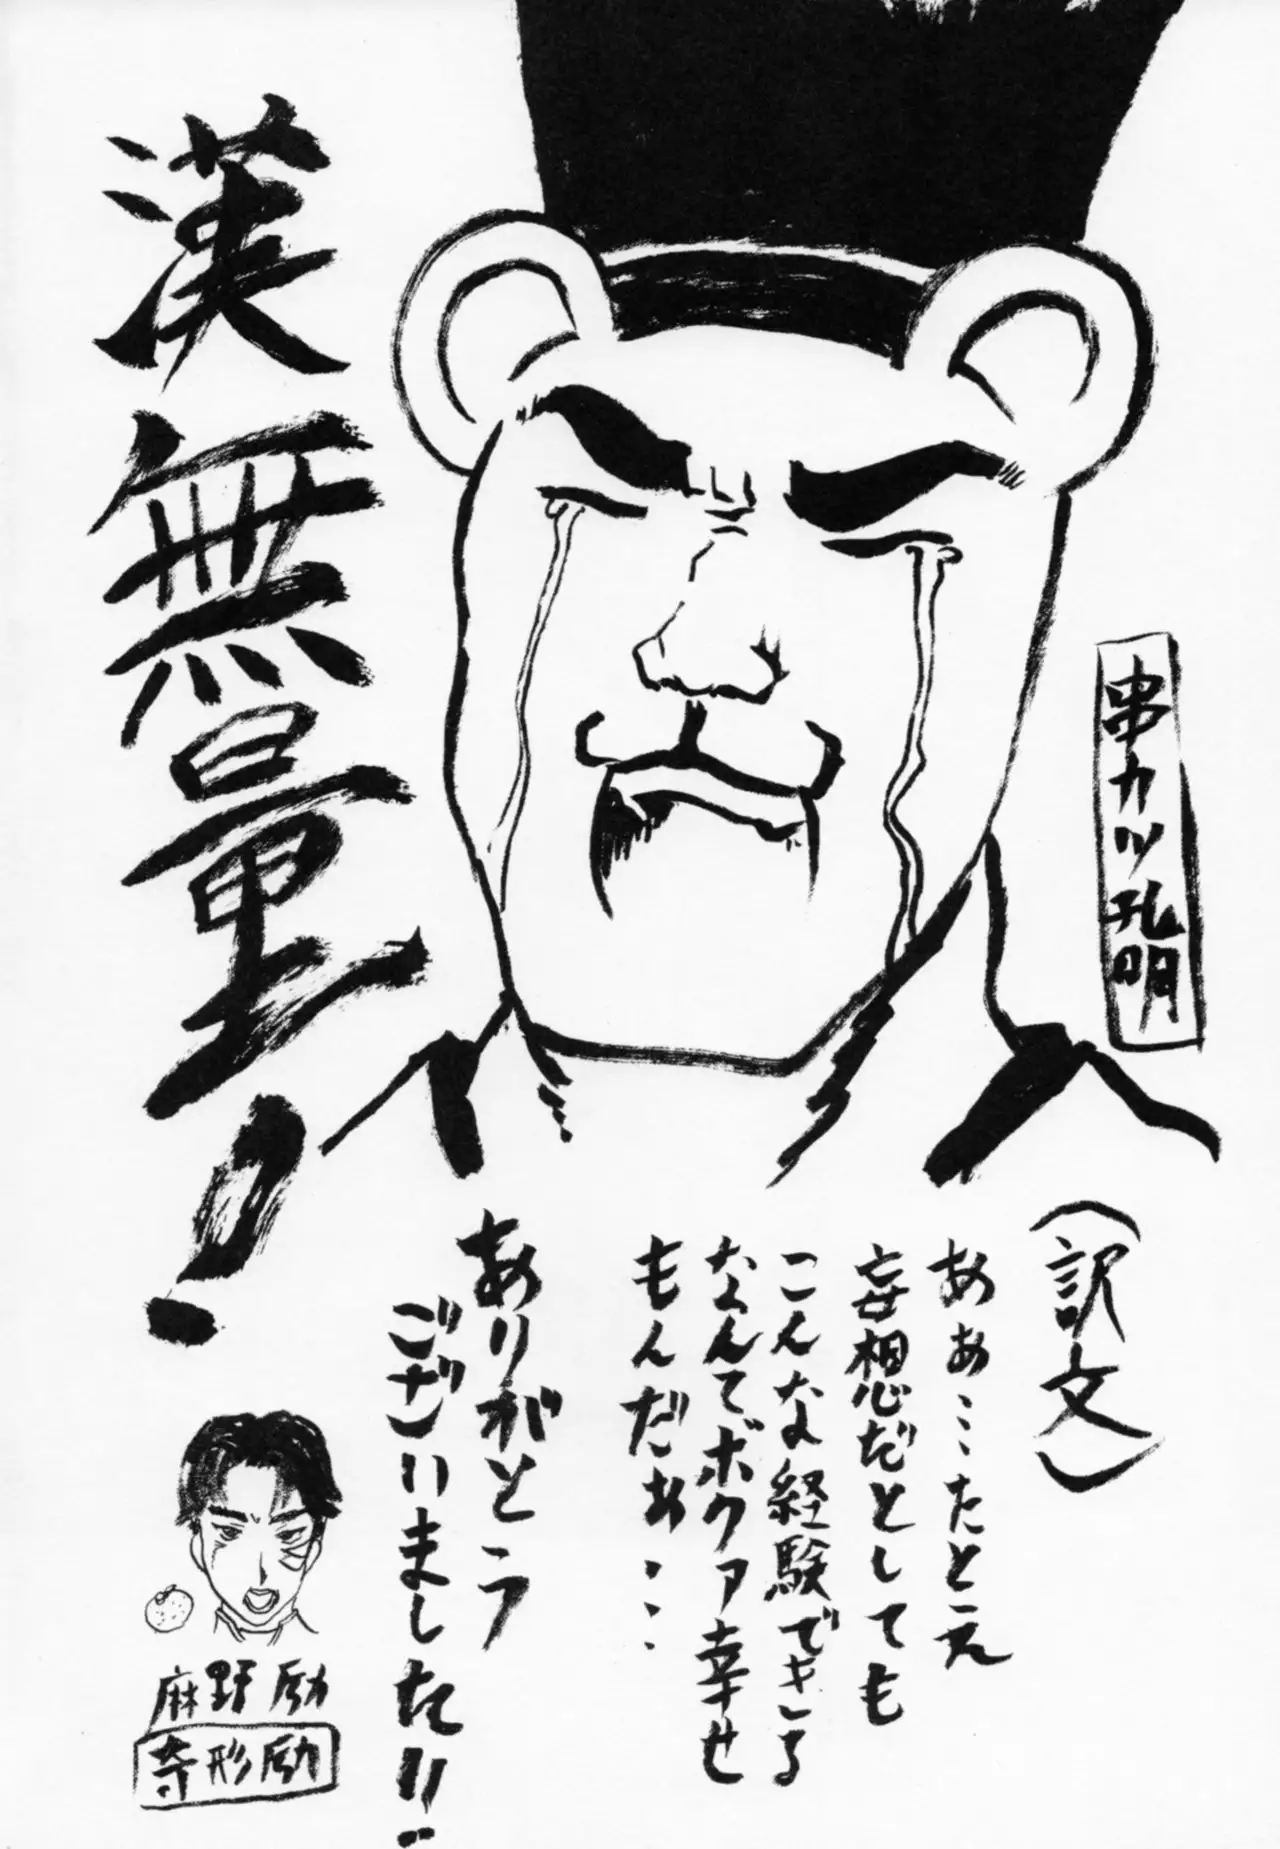 串カツ孔明
漢無量!
(訳文)
ああ…たとえ
妄想だとしても
こんな経験できる
なんてボクァ幸せ
もんだぁ…
ありがとう
ございました!!
麻野励
寺形励